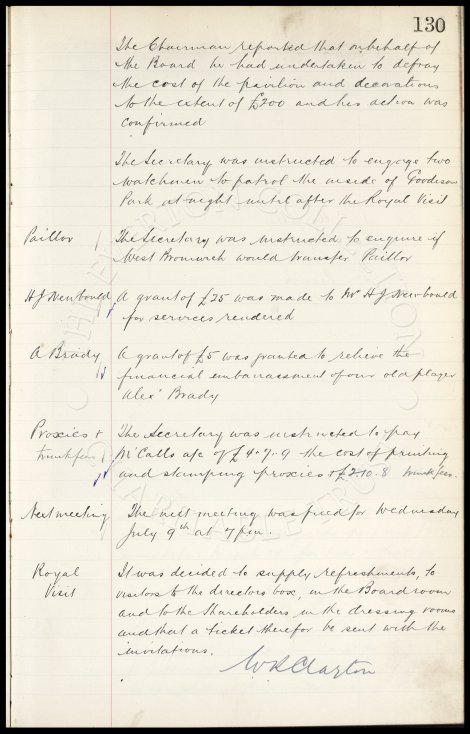 130
The Chairman reported that on behalf of
the Board he had undertaken to defray
the cost of the pavilion and decorations
to the extent of £200 and his action was
confirmed
The Secretary was instructed to engage two
watchmen to patrol the inside of Goodison
Park at night until after the Royal Visit
Paillor The Secretary was instructed to enquire if
West Bromwich would transfer Paillor
H J Newbould A grant of £25 was made to Mr H J Newbould
for services rendered
A Brady A grant of £5 was granted to relieve the
financial embarrassment of our old player
Alex Brady
Proxies + The Secretary was instructed to pay
McCalls a/c of £4.7.9 the cost of printing
and stamping proxies + £2.10.8
Next meeting The next meeting was fixed for Wednesday
July 9th at 7 pm.
Royal It was decided to supply refreshments, to
Visit visitors to the directors box, in the Boardroom
and to the Shareholders, in the dressing rooms
and that a ticket therefor be sent with the
invitations.
W R Clayton